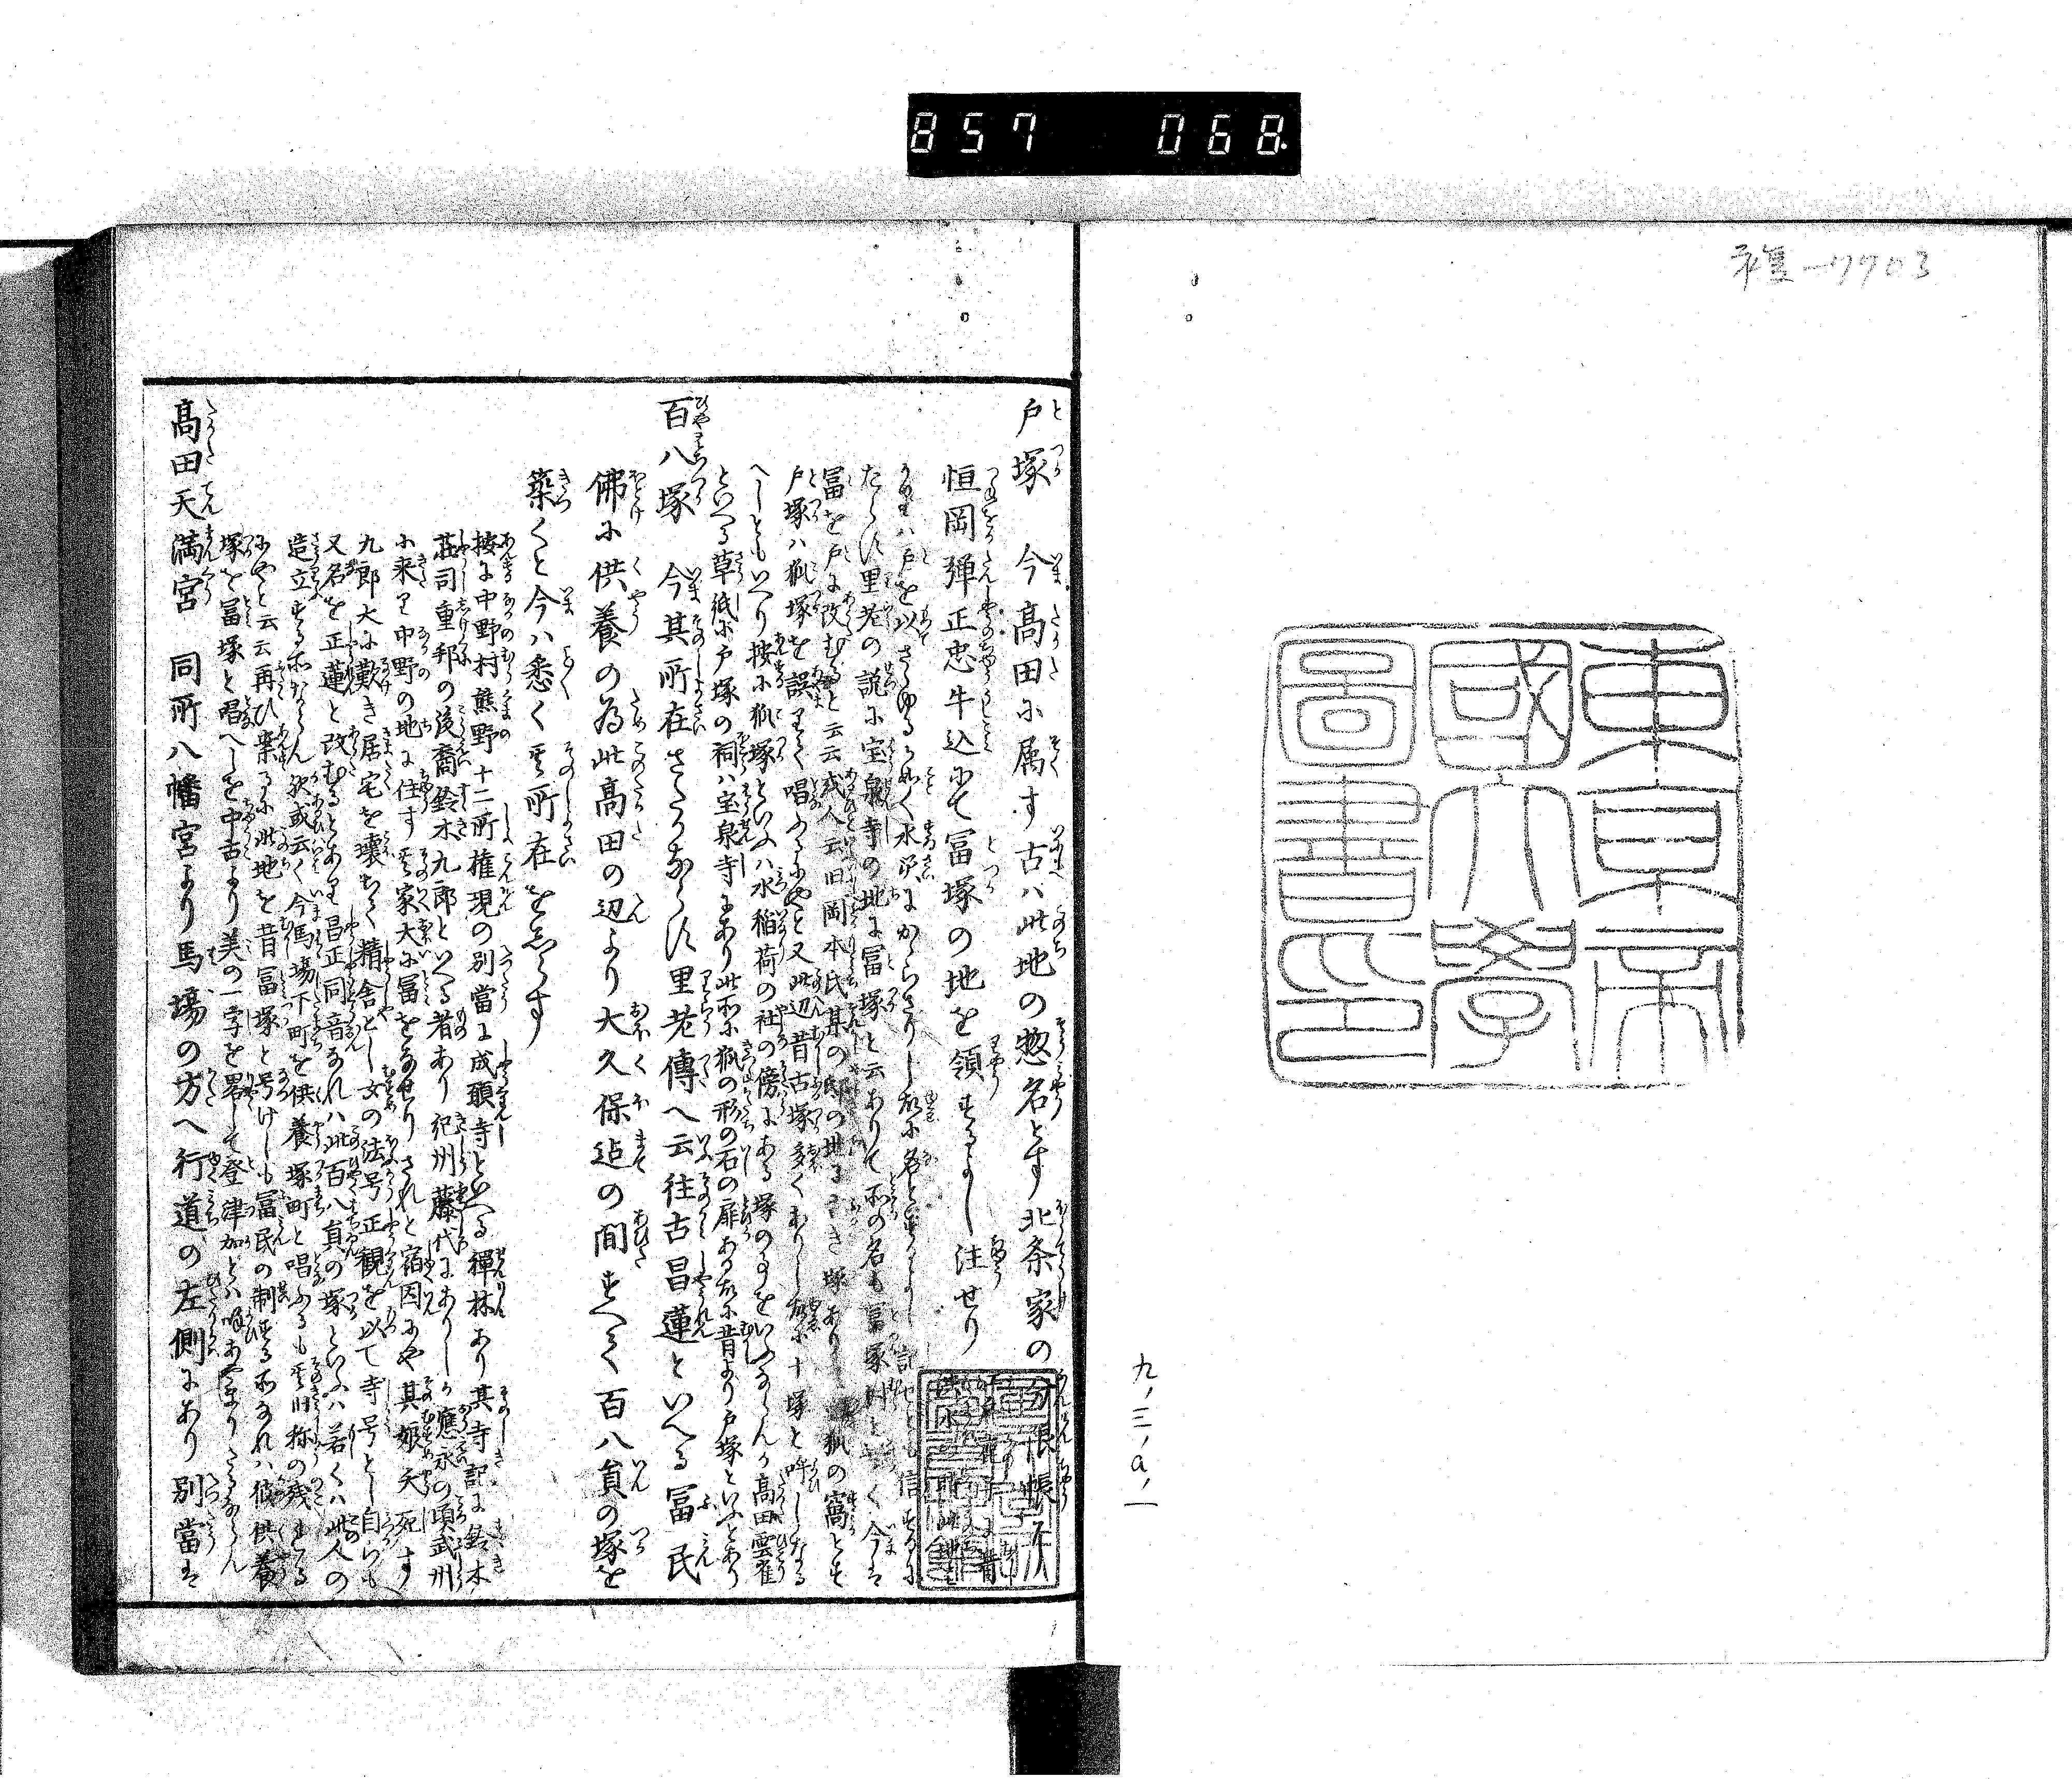 857 068
7703
東京帝
國大學
圖書印
九、三、a、一
戸塚　今高田に属す古ハ此地の惣名とす北条家の分限帳に
恒岡弾正忠牛込にて冨塚の地を領するよし注せり
冨を戸に改むると云云或人云旧岡本氏某の
戸塚ハ狐塚を誤りて唱ふるにやと又此辺昔古塚多くありし故に十塚と呼しなる
へしともいへり按に狐塚といふハ水稲荷の社の傍にある塚の事をいふならんか高田雲雀
といへる草紙に戸塚の祠ハ宝泉寺にあり此所に狐の形の石の扉ある故に昔より戸塚といふとあり
百八塚　今其所在さたかならす里老傳へ云往古昌蓮といへる冨民
佛に供養の為此高田の辺より大久保迠の間すへて百八員の塚を
築くと今ハ悉く其所在をしらす
按に中野村熊野十二所権現の別當に成願寺といへる禅林あり其寺記に鈴木
荘司重邦の後裔鈴木九郎といへる者あり紀州藤代にありしか應永の頃武州
に来り中野の地に住す其家大に冨をなせりされと宿因にや其娘夭死す
九郎大に歎き居宅を壊ちて精舎とし女の法号正観を以て寺号とし自らも
又名を正蓮と改むるとあり昌正同音なれハ此百八員の塚といふハ若くハ此人の
造立する所ならん歟或云く今馬場下町を供養塚町と唱ふるも其旧称の残れる
にやと云云再ひ案るに此地を昔冨塚と号けしも冨民の制する所なれハ彼供養
塚を冨塚と唱へしを中古より美の一字を畧して登津加とハ唱あやまりたるならん
髙田天満宮　同所八幡宮より馬場の方へ行道の左側にあり別當は